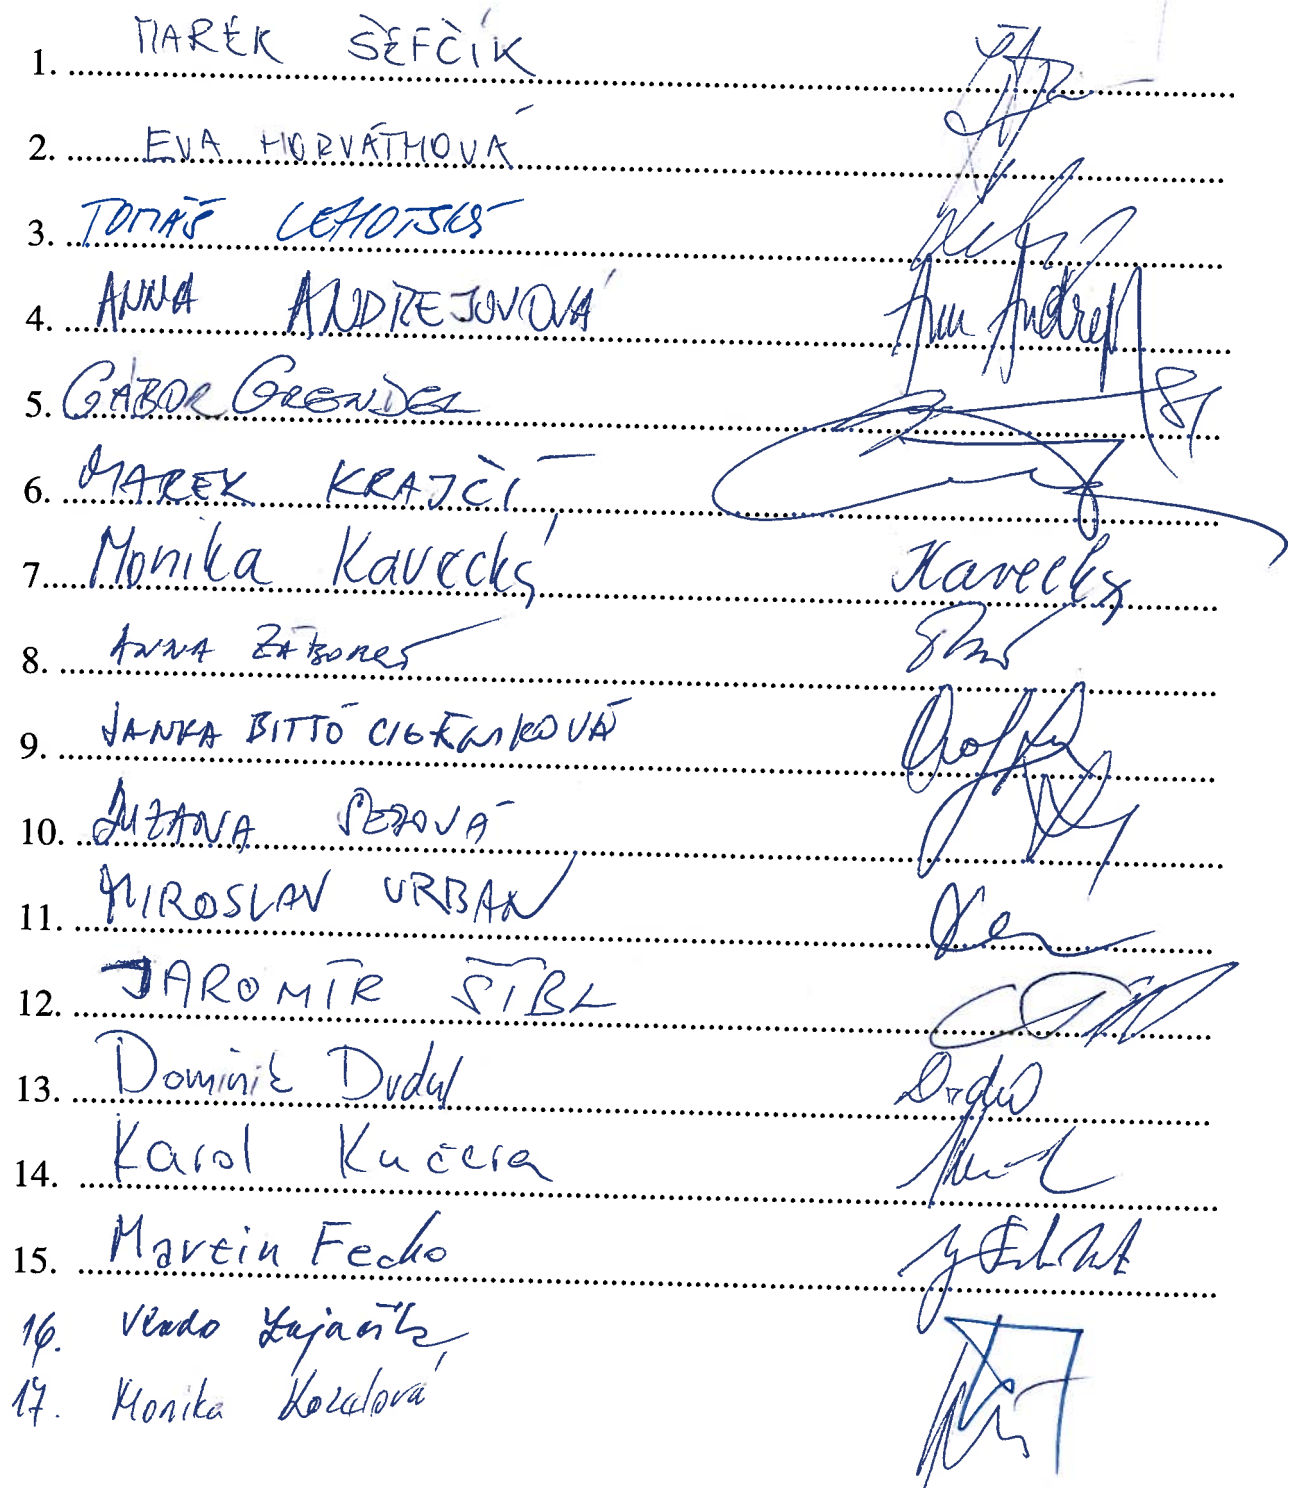 1. MAREK ŠEFČÍK
2. EVA HORVÁTHOVÁ
3. TOMÁŠ LEHOTSKÝ
4. ANNA ANDREJUVOVÁ Ann Andrej
5. GÁBOR GRENDEL
6. MAREK KRAJČÍ
7. Monika Kavecká Kavecká
8. ANNA ZÁBORSKÁ
9. JANKA BITTÓ CIGÁNIKOVÁ
10. ZUZANA ŠEBOVÁ
11. MIROSLAV URBAN
12. JAROMÍR ŠÍBL
13. Dominik Drdul Drdul
14. Karol Kučera
15. Martin Fecko
16. Vlado Zajačik
17. Monika Kozelová